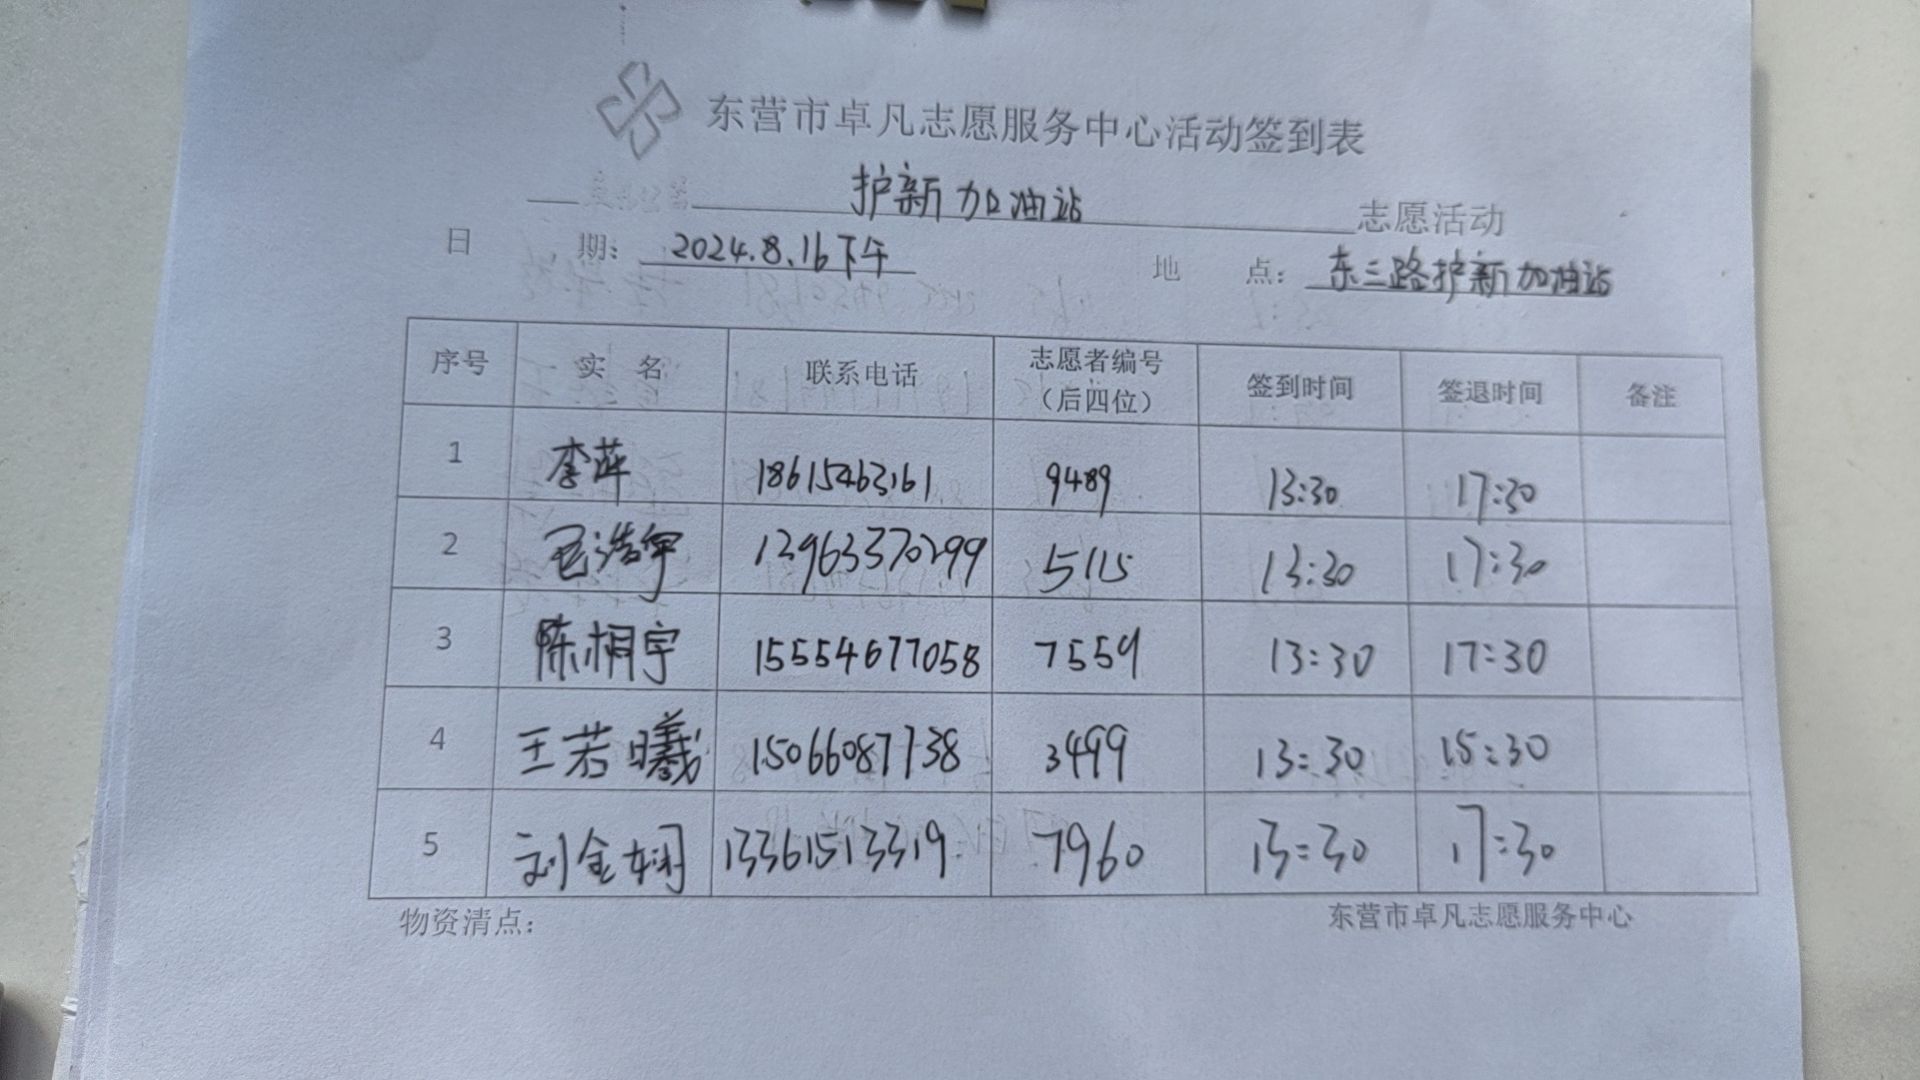 东营市卓凡志愿服务中心活动签到表
护新加油站 志愿活动
日 期： 2024.8.16下午 地 点： 东三路护新加油站
序号 实 名 联系电话 志愿者编号（后四位） 签到时间 签退时间 备注
1 李萍 18615463161 9489 13:30 17:30
2 浩宇 13963370299 5115 13:30 17:30
3 陈相宇 15554677058 7559 13:30 17:30
4 王若曦 15066087738 3499 13:30 15:30
5 刘金娴 13361513319 7960 13:30 17:30
物资清点： 东营市卓凡志愿服务中心